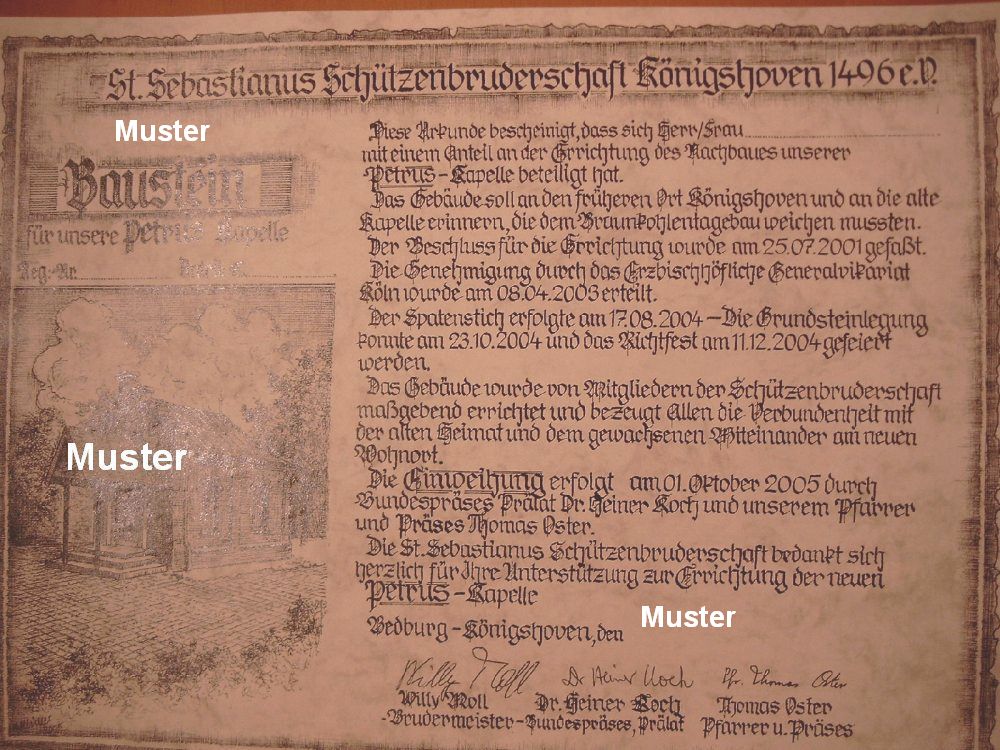 St. Sebastianus Schützenbruderschaft Königshoven 1496 e.V.
Muster
Baustein
für unsere Petrus Kapelle
Reg.-Nr.
Diese Urkunde bescheinigt, dass sich Herr/Frau
mit einem Anteil an der Errichtung des Nachbaues unserer
Petrus-Kapelle beteiligt hat.
Das Gebäude soll an den früheren Ort Königshoven und an die alte
Kapelle erinnern, die dem Braunkohlentagebau weichen mussten.
Der Beschluss für die Errichtung wurde am 25.07.2001 gefaßt.
Die Genehmigung durch das Erzbischhöfliche Generalvikariat
Köln wurde am 08.04.2003 erteilt.
Der Spatenstich erfolgte am 17.08.2004 – Die Grundsteinlegung
konnte am 23.10.2004 und das Richtfest am 11.12.2004 gefeiert
werden.
Das Gebäude wurde von Mitgliedern der Schützenbruderschaft
maßgebend errichtet und bezeugt Allen die Verbundenheit mit
der alten Heimat und dem gewachsenen Miteinander am neuen
Wohnort.
Muster
Die Einweihung erfolgt am 01. Oktober 2005 durch
Bundespräses Prälat Dr. Heiner Koch und unserem Pfarrer
und Präses Thomas Oster.
Die St. Sebastianus Schützenbruderschaft bedankt sich
herzlich für Ihre Unterstützung zur Errichtung der neuen
Petrus-Kapelle
Muster
Bedburg-Königshoven, den
Willy Moll Dr Heiner Koch Pfr. Thomas Oster
Willy Moll Dr. Heiner Koch Thomas Oster
-Brudermeister- Bundespräses, Prälat Pfarrer u. Präses